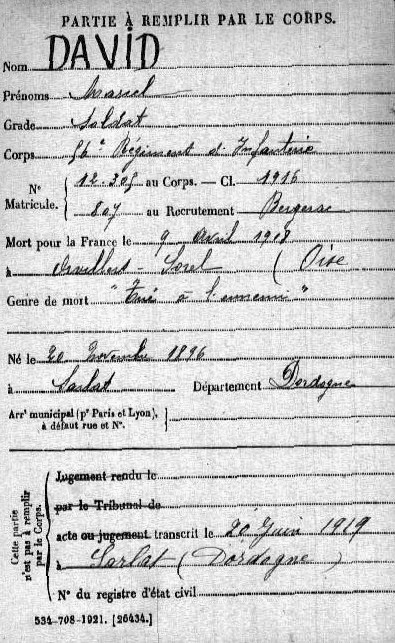 PARTIE À REMPLIR PAR LE CORPS.
Nom DAVID
Prénoms Marcel
Grade Soldat
Corps 56e Régiment d'Infanterie
N° Matricule. 12 305 au Corps. — Cl. 1916
807 au Recrutement Bergerac
Mort pour la France le 9 Avril 1918
à Orvillers-Sorel (Oise
Genre de mort "Tué à l'ennemi"
Né le 20 Novembre 1896
à Sarlat Département Dordogne
Arrt municipal (pr Paris et Lyon), à défaut rue et N°.
Cette partie n'est pas à remplir par le Corps.
Jugement rendu le
par le Tribunal de
acte ou jugement transcrit le 20 Juin 1919
à Sarlat (Dordogne)
N° du registre d'état civil
534-708-1921. [26434.]